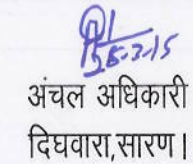 25-3-15
अंचल अधिकारी
दिघवारा,सारण।